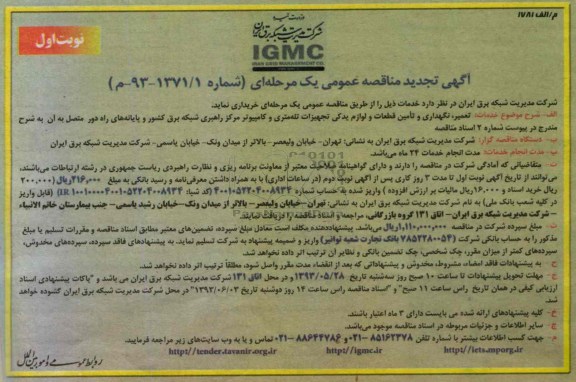 م/الف ۱۷۸۱
وزارت نیرو
شرکت مدیریت شبکه برق ایران
IGMC
IRAN GRID MANAGEMENT CO.
نوبت اول
آگهی تجدید مناقصه عمومی یک مرحله‌ای (شماره ۹۳-۱۳۷۱/۱-م)
شرکت مدیریت شبکه برق ایران در نظر دارد خدمات ذیل را از طریق مناقصه عمومی یک مرحله‌ای خریداری نماید.
الف - شرح موضوع خدمات: تعمیر، نگهداری و تأمین قطعات و لوازم یدکی تجهیزات تله‌متری و کامپیوتر مرکز راهبری شبکه برق کشور و پایانه‌های راه دور متصل به آن به شرح
مندرج در پیوست شماره ۲ اسناد مناقصه
ب- دستگاه مناقصه گزار: شرکت مدیریت شبکه برق ایران به نشانی: تهران- خیابان ولیعصر- بالاتر از میدان ونک- خیابان یاسمی- شرکت مدیریت شبکه برق ایران
پ- مدت انجام خدمات: مدت انجام خدمات ۲۴ ماه می‌باشد.
ت- متقاضیانی که آمادگی شرکت در مناقصه را دارند و دارای گواهینامه صلاحیت معتبر از معاونت برنامه ریزی و نظارت راهبردی ریاست جمهوری در رشته ارتباطات می‌باشند،
می‌توانند از تاریخ آگهی نوبت اول تا مدت ۳ روز کاری پس از آگهی نوبت دوم (در ساعات اداری) با به همراه داشتن معرفی‌نامه و رسید بانکی به مبلغ ۲۱۶,۰۰۰ ریال (۲۰۰,۰۰۰
ریال خرید اسناد و ۱۶,۰۰۰ ریال مالیات بر ارزش افزوده) واریز شده به حساب شماره ۴۰۰۱۰۵۲۲۰۴۰۰۸۹۳۴ (کد شبا: IR) (قابل واریز
در کلیه شعب بانک ملی) به نام شرکت مدیریت شبکه برق ایران به نشانی: تهران- خیابان ولیعصر- بالاتر از میدان ونک- خیابان رشید یاسمی- جنب بیمارستان خاتم الانبیاء
- شرکت مدیریت شبکه برق ایران- اتاق ۱۳۱ گروه بازرگانی، مراجعه و اسناد مناقصه را دریافت نمایند.
ث- مبلغ سپرده شرکت در مناقصه ۱,۱۱۰,۰۰۰,۰۰۰ ریال می‌باشد. پیشنهاددهنده مکلف است معادل مبلغ سپرده، تضمین‌های معتبر مطابق اسناد مناقصه و مقررات تسلیم یا مبلغ
مذکور را به حساب بانکی شرکت (۷۸۵۳۲۸۰۰۵۴ بانک تجارت شعبه توانیر) واریز و ضمیمه پیشنهاد به شرکت تسلیم نماید. به پیشنهادهای فاقد سپرده، سپرده‌های مخدوش،
سپرده‌های کمتر از میزان مقرر، چک شخصی، چک تضمین بانکی و نظایر آن ترتیب اثر داده نخواهد شد.
ج- به پیشنهادات فاقد امضاء، مشروط، مخدوش و پیشنهاداتی که بعد از انقضاء مدت مقرر واصل شود، مطلقاً ترتیب اثر داده نخواهد شد.
چ- مهلت تحویل پیشنهادات تا ساعت ۱۰ صبح روز سه‌شنبه تاریخ ۱۳۹۳/۰۵/۲۸ و در محل اتاق ۱۳۱ شرکت مدیریت شبکه برق ایران می باشد و "پاکات پیشنهادی اسناد
ارزیابی کیفی در همان تاریخ راس ساعت ۱۱ صبح" و "اسناد مناقصه راس ساعت ۱۴ روز دوشنبه تاریخ ۱۳۹۳/۰۶/۰۳" در محل شرکت مدیریت شبکه برق ایران گشوده خواهد
شد.
ح- کلیه پیشنهادهای ارائه شده می بایست دارای ۳ ماه اعتبار باشند.
خ- سایر اطلاعات و جزئیات مربوطه در اسناد مناقصه موجود می‌باشد.
د- جهت کسب اطلاعات بیشتر با شماره تلفن ۸۵۱۶۲۳۷۸-۰۲۱ و ۸۸۶۴۴۷۸۶-۰۲۱ تماس و یا به وب سایت‌های زیر مراجعه فرمایید.
http://tender.tavanir.org.ir http://igmc.ir http://iets.mporg.ir
روابط عمومی و امور بین الملل